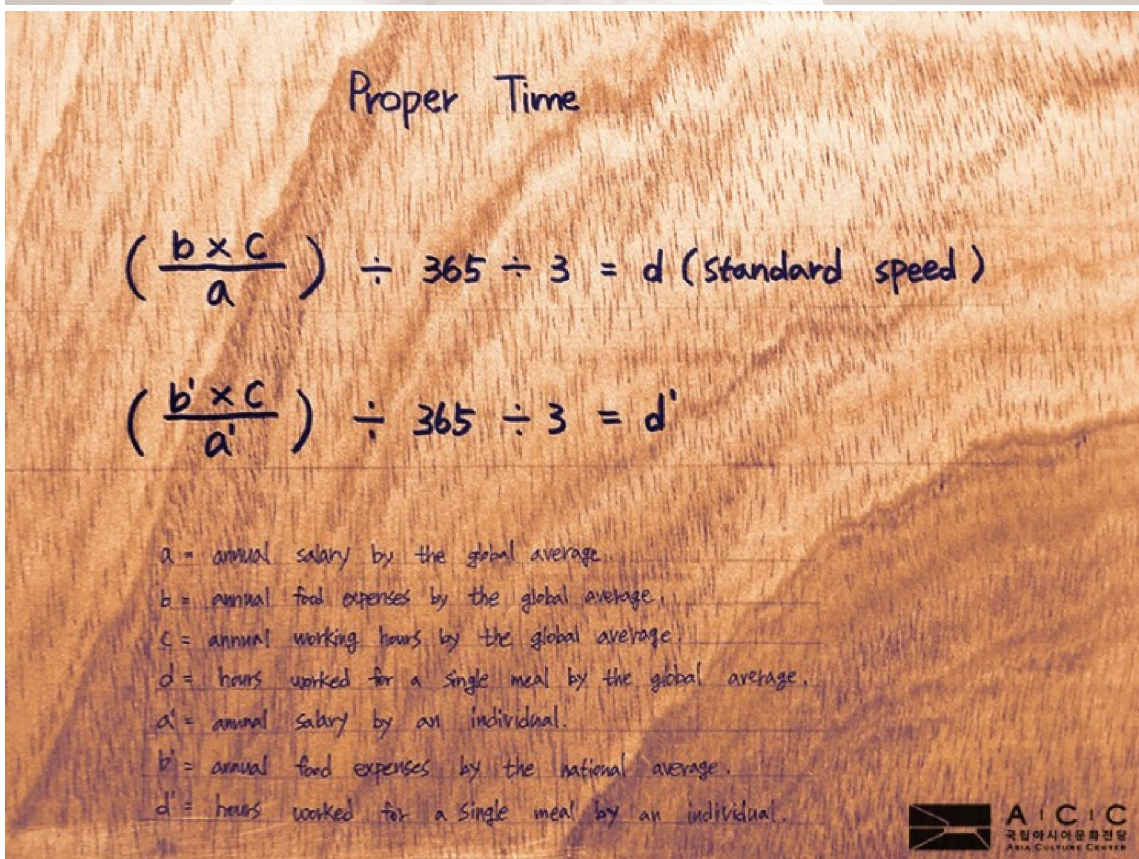 Proper Time
( b × c / a ) ÷ 365 ÷ 3 = d (standard speed)
( b' × c / a' ) ÷ 365 ÷ 3 = d'
a = annual salary by the global average.
b = annual food expenses by the global average.
c = annual working hours by the global average.
d = hours worked for a single meal by the global average.
a' = annual salary by an individual.
b' = annual food expenses by the national average.
d' = hours worked for a single meal by an individual.
A C C
국립아시아문화전당
ASIA CULTURE CENTER